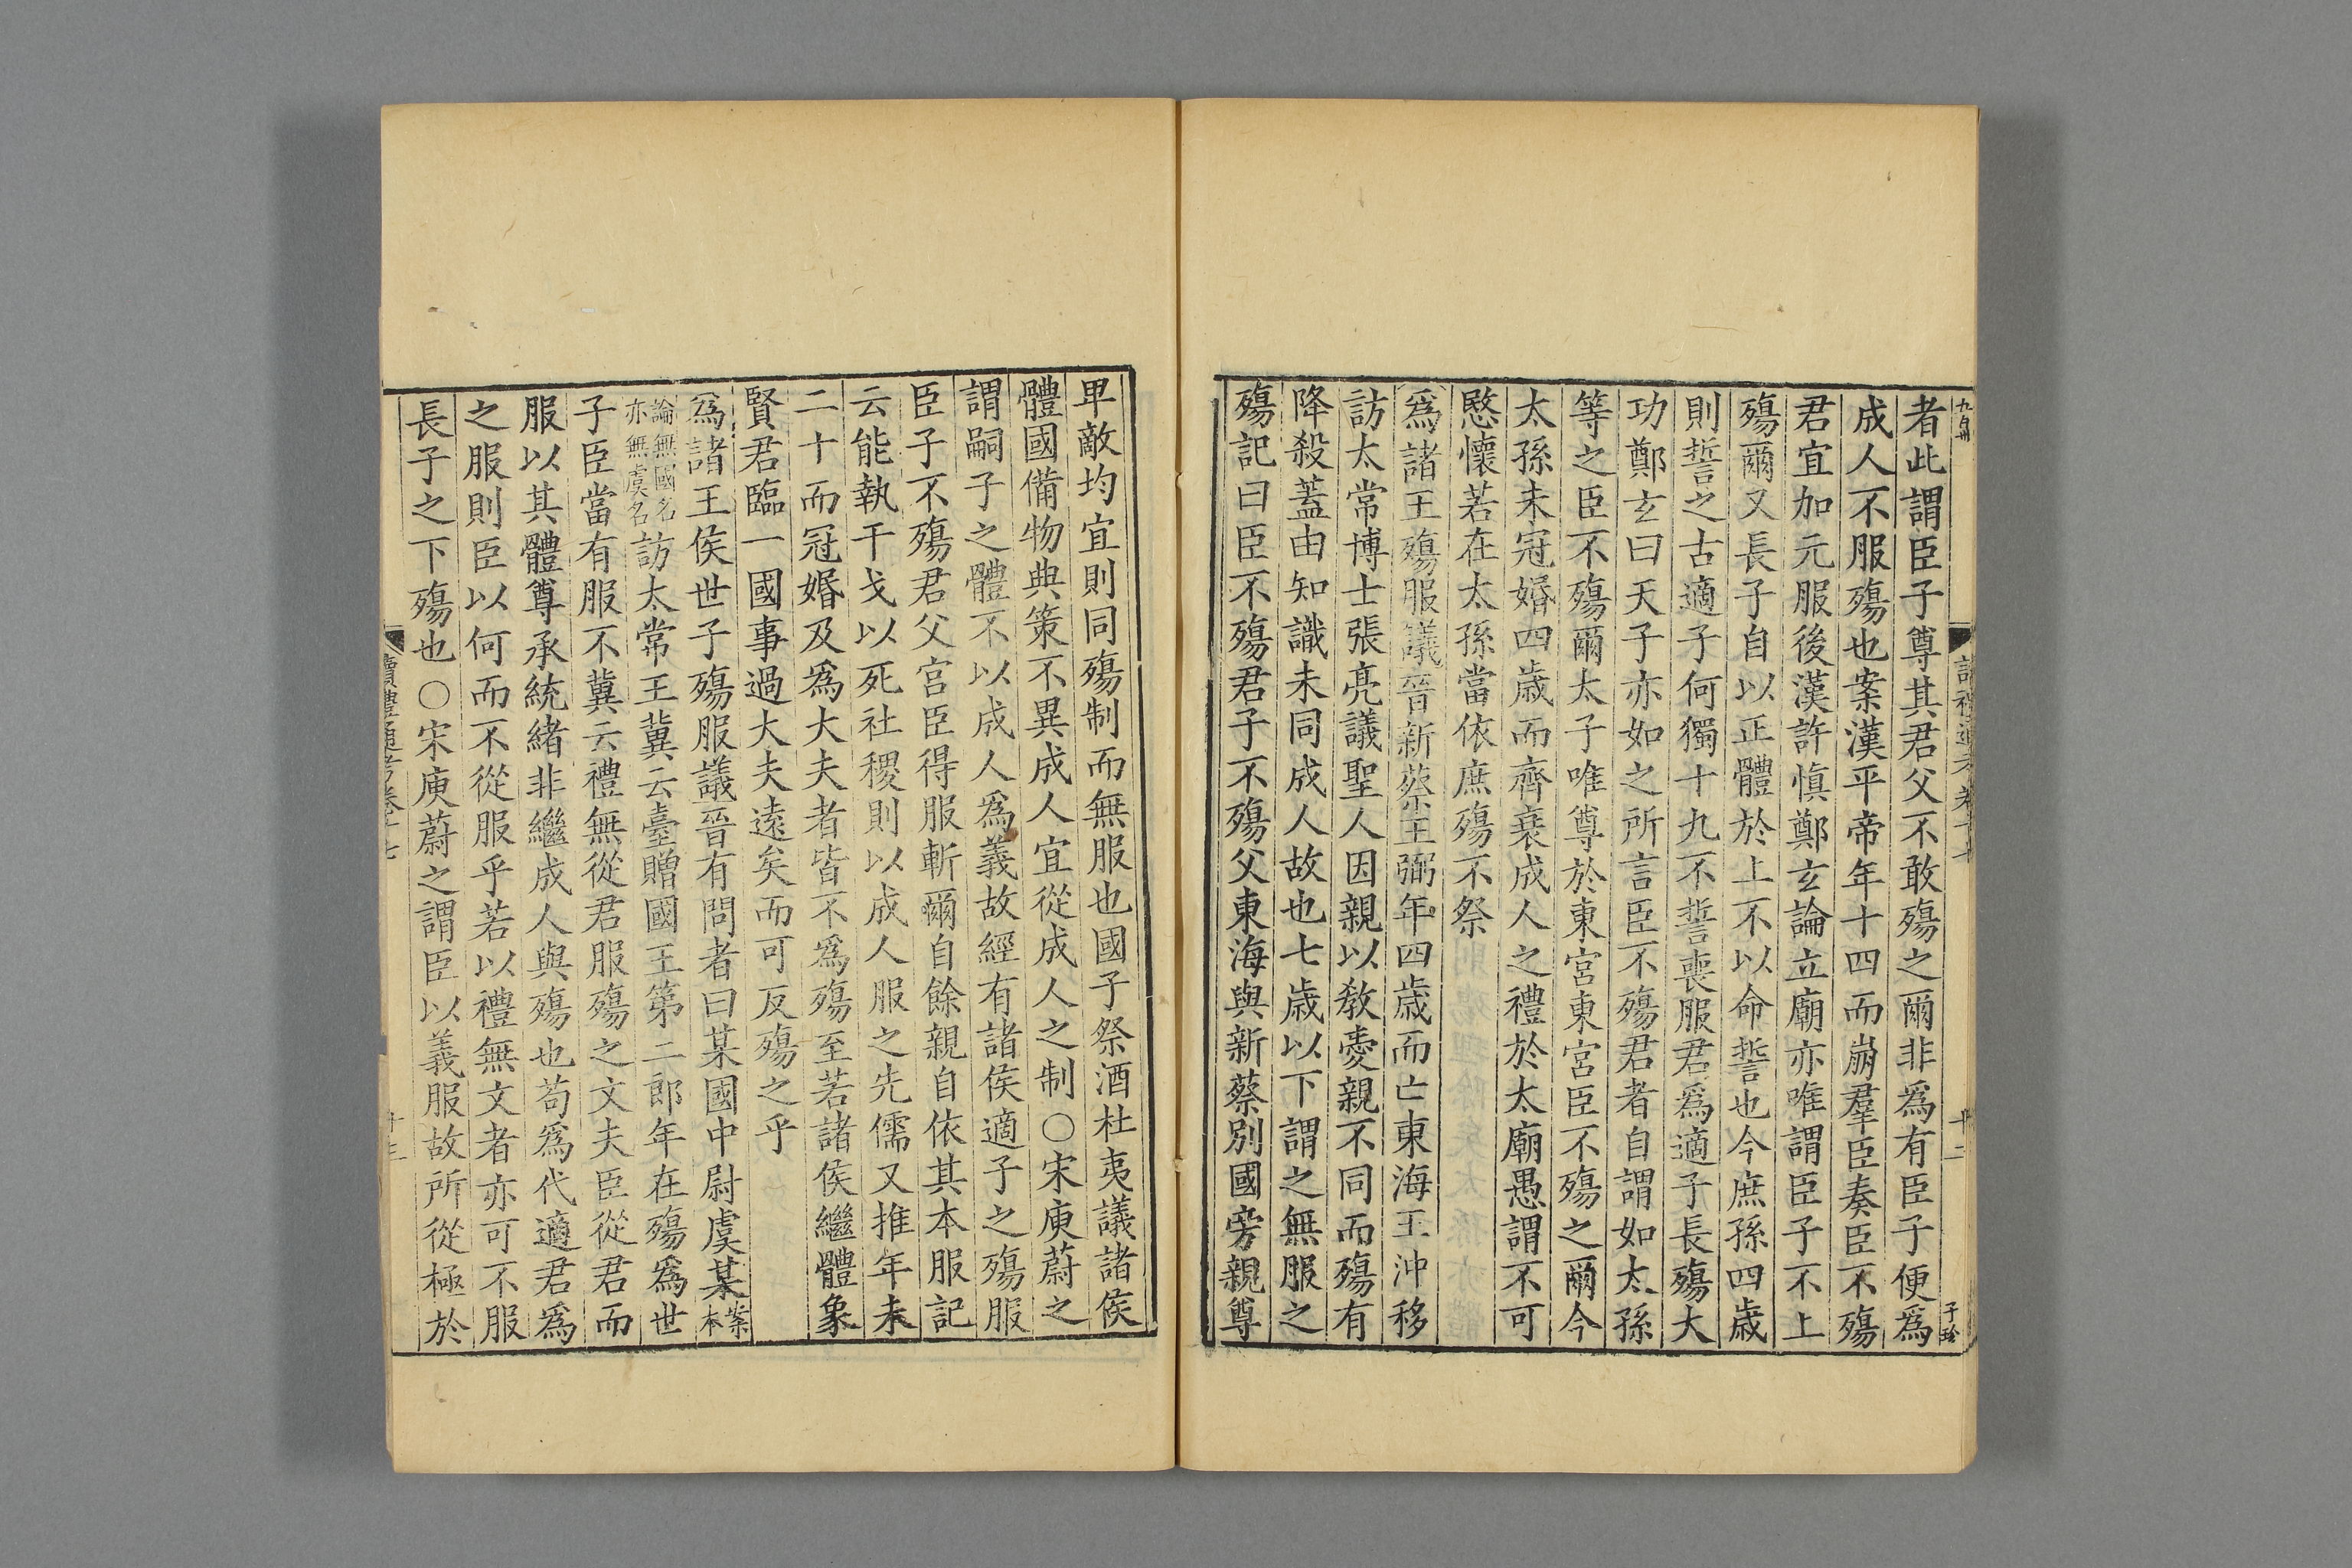 者此謂臣子尊其君父不敢殤之爾非爲有臣子便爲
成人不服殤也案漢平帝年十四而崩羣臣奏臣不殤
君宜加元服後漢許慎鄭玄論立廟亦唯謂臣子不上
殤爾又長子自以正體於上不以命誓也今庶孫四歳
則誓之古適子何獨十九不誓喪服君爲適子長殤大
功鄭玄曰天子亦如之所言臣不殤君者自謂如太孫
等之臣不殤爾太子唯尊於東宮東宮臣不殤之爾今
太孫未冠婚四歳而齊衰成人之禮於太廟愚謂不可
愍懷若在太孫當依庶殤不祭
爲諸王殤服議晉新蔡王弼年四歳而亡東海王沖移
訪太常博士張亮議聖人因親以敎愛親不同而殤有
降殺蓋由知識未同成人故也七歳以下謂之無服之
殤記曰臣不殤君子不殤父東海與新蔡別國旁親尊
十二
子珍
卑敵均宜則同殤制而無服也國子祭酒杜夷議諸侯
體國備物典策不異成人宜從成人之制○宋庾蔚之
謂嗣子之體不以成人爲義故經有諸侯適子之殤服
臣子不殤君父宮臣得服斬爾自餘親自依其本服記
云能執干戈以死社稷則以成人服之先儒又推年未
二十而冠婚及爲大夫者皆不爲殤至若諸侯繼體象
賢君臨一國事過大夫遠矣而可反殤之乎
爲諸王侯世子殤服議晉有問者曰某國中尉虞某案本
論無國名亦無虞名訪太常王冀云臺贈國王第二郎年在殤爲世
子臣當有服不冀云禮無從君服殤之文夫臣從君而
服以其體尊承統緒非繼成人與殤也苟爲代適君爲
之服則臣以何而不從服乎若以禮無文者亦可不服
長子之下殤也○宋庾蔚之謂臣以義服故所從極於
讀禮通考卷十七
十三